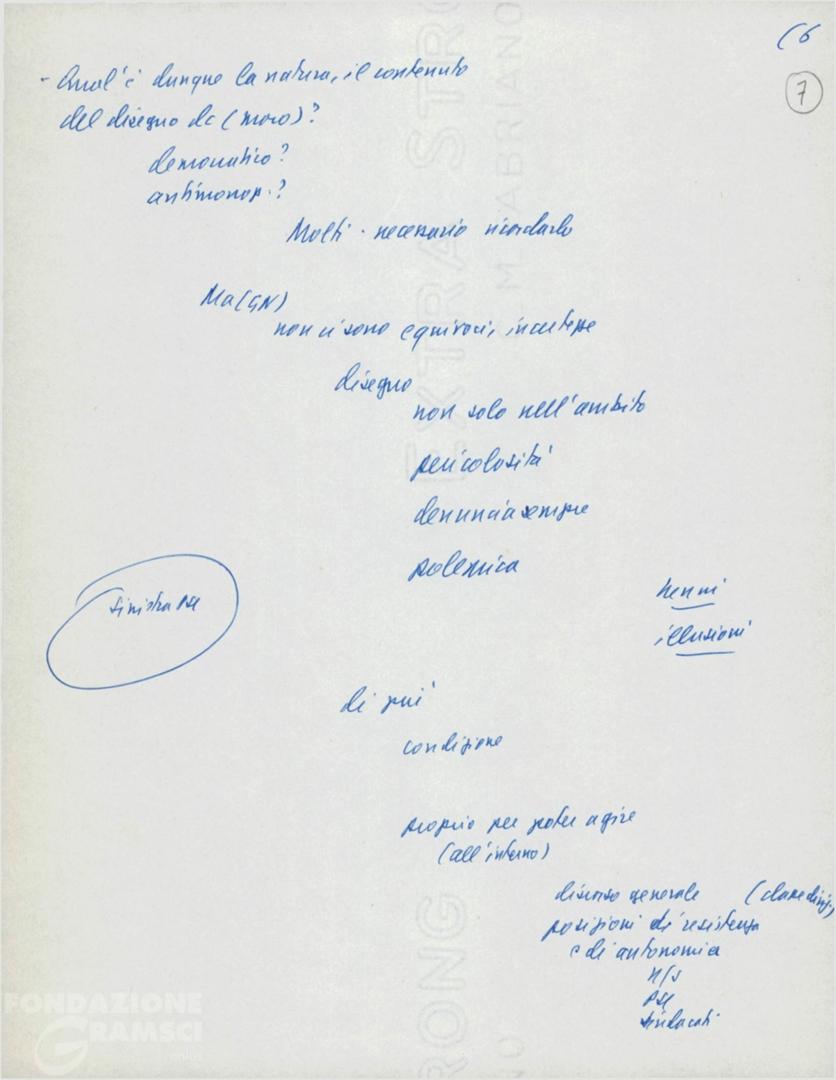 C6
7
- Qual'è dunque la natura, il contenuto
del disegno dc (moro)?
democratico?
antimonop.?
Molti - necessario ricordarlo
Ma (GN)
non ci sono equivoci, incertezze
disegno
non solo nell'ambito
pericolosità
denuncia sempre
polemica
nenni
sinistra PSI
illusioni
di più
condizione
proprio per poter agire
(all'interno)
discorso generale (classe dirig.)
posizioni di resistenza
e di autonomia
PSI
sindacati
EXTRA STRO
M. FABRIANO
RONG
FONDAZIONE
GRAMSCI
onlus